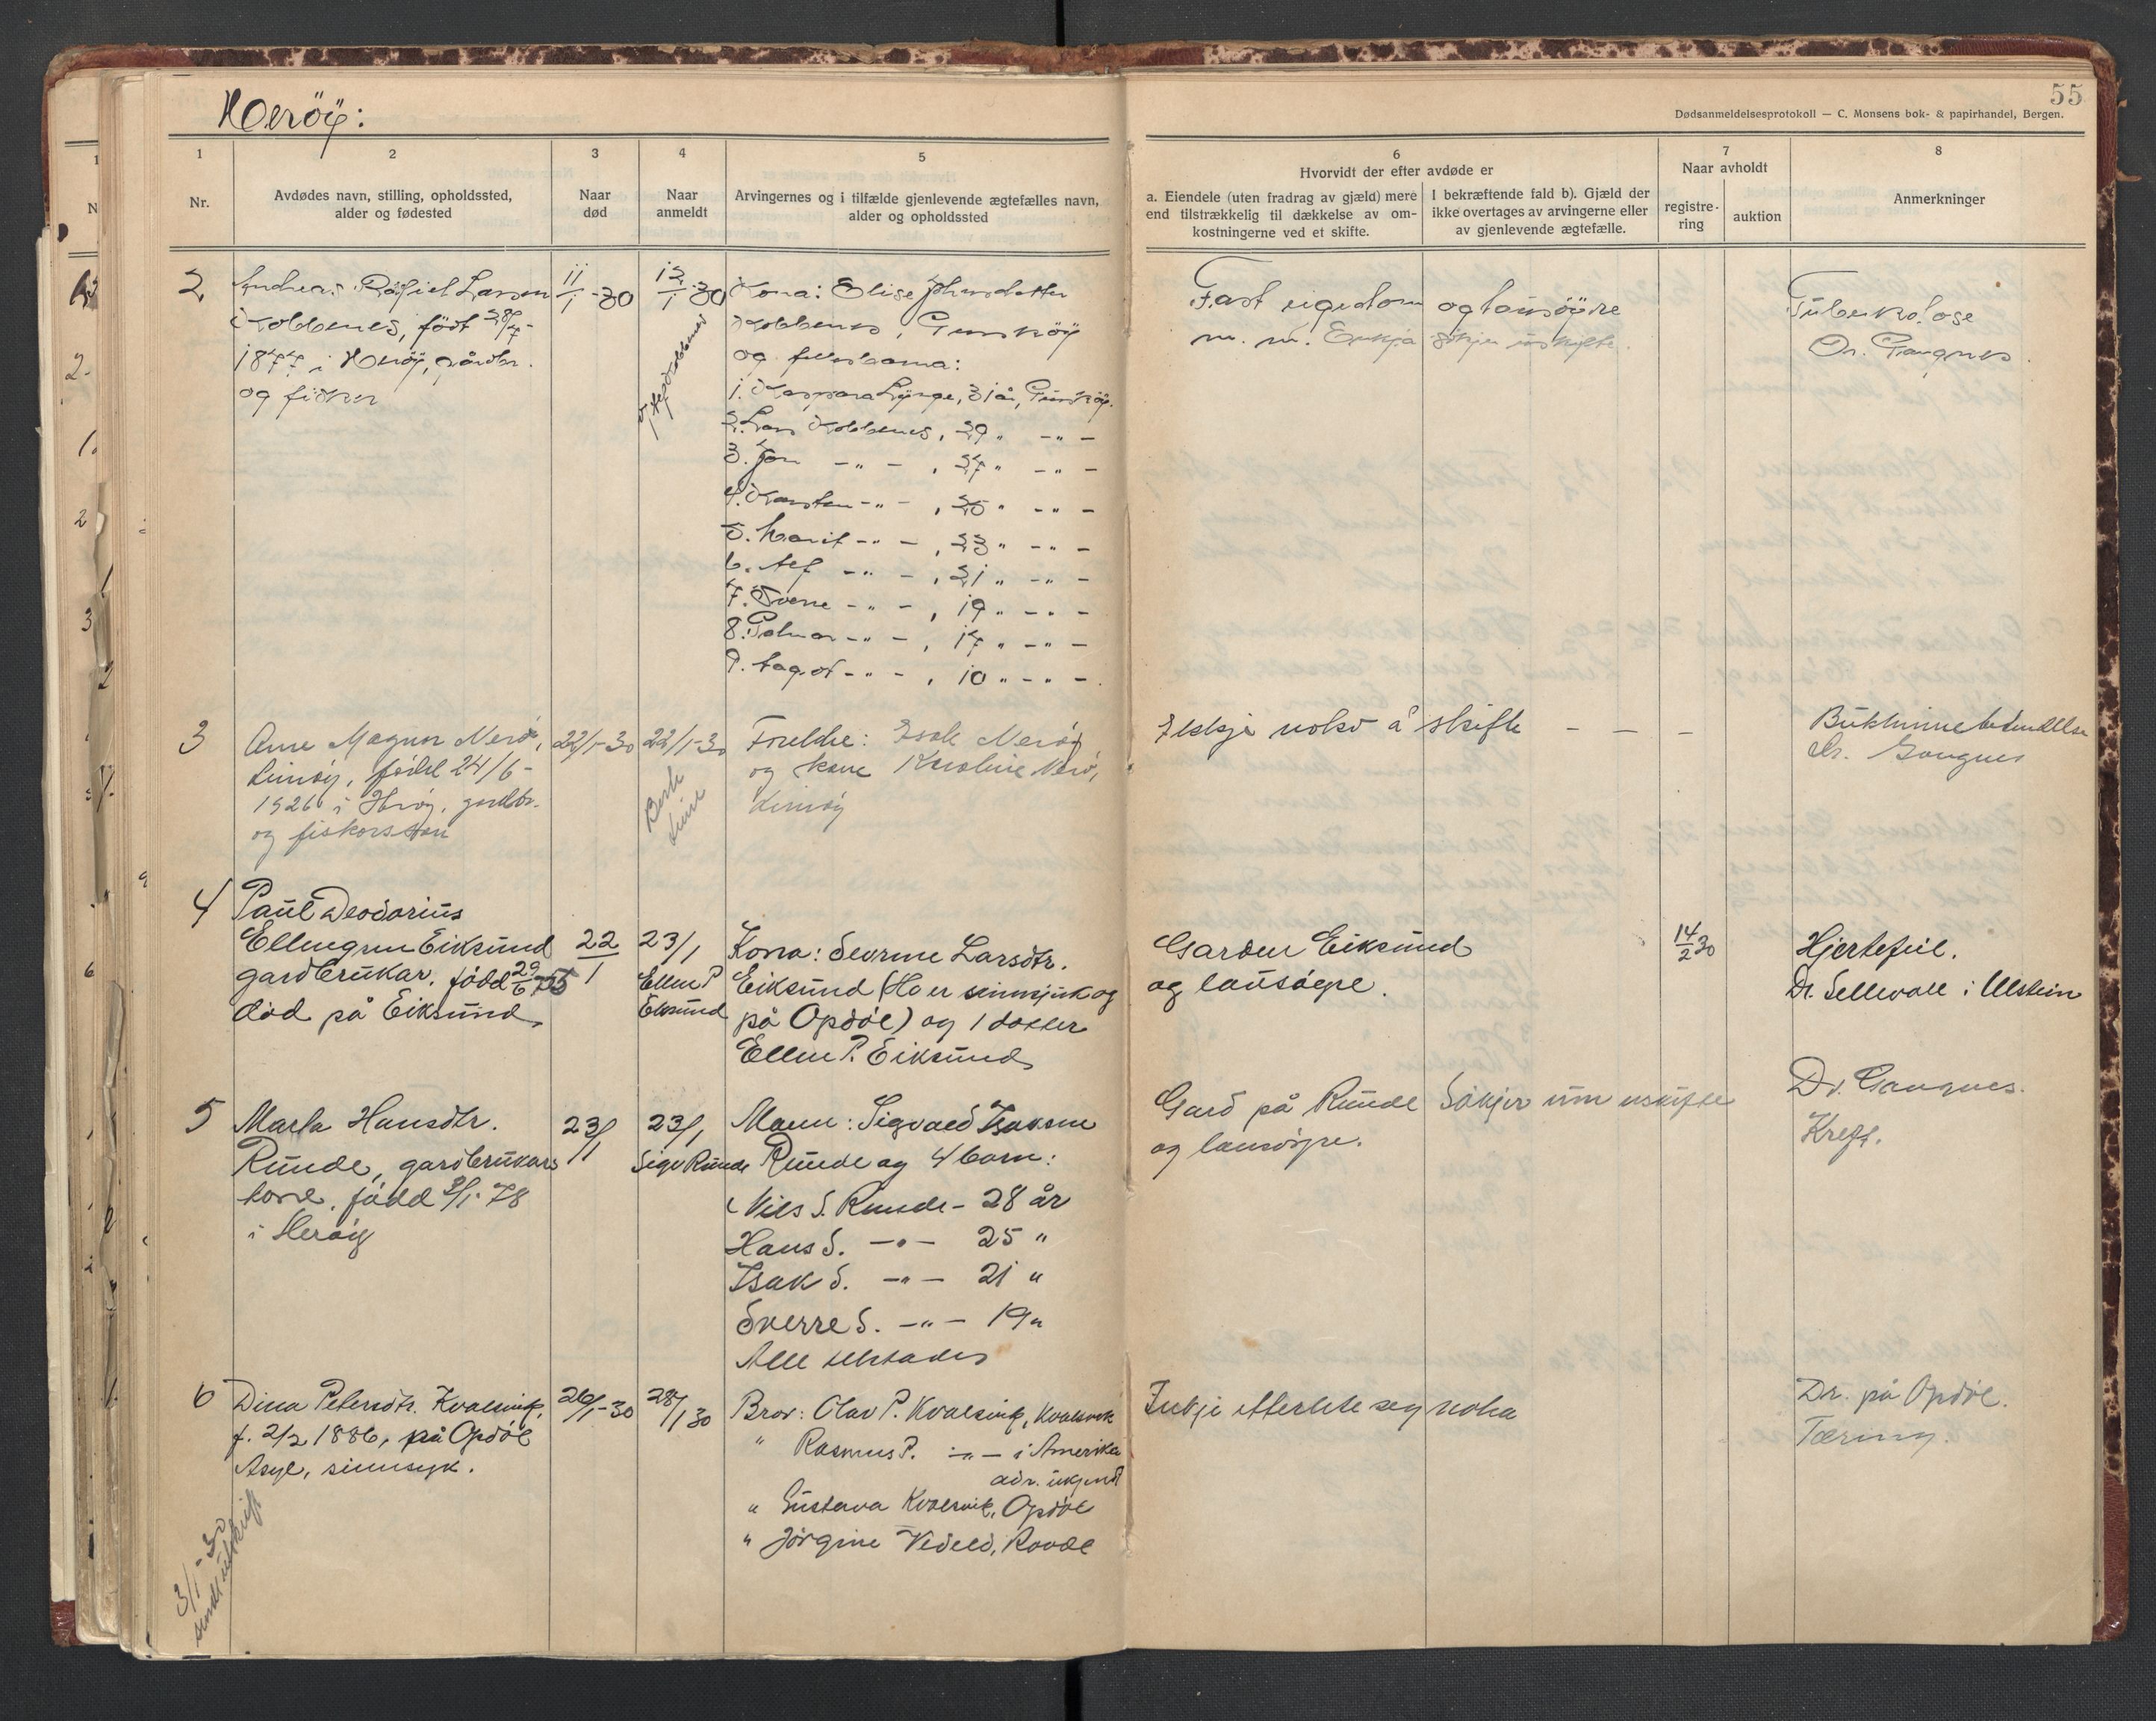 Herøy:
55
Dødsanmeldelsesprotokoll — C. Monsens bok- & papirhandel, Bergen.
1
Nr.
2
Avdødes navn, stilling, opholdssted,
alder og fødested
3
Naar
død
4
Naar
anmeldt
5
Arvingernes og i tilfælde gjenlevende ægtefælles navn,
alder og opholdssted
6
Hvorvidt der efter avdøde er
a. Eiendele (uten fradrag av gjæld) mere
end tilstrækkelig til dækkelse av om-
kostningerne ved et skifte.
I bekræftende fald b). Gjæld der
ikke overtages av arvingerne eller
av gjenlevende ægtefælle.
7
Naar avholdt
registre-
ring
auktion
8
Anmerkninger
2
Andreas Larsen
Kobbenes, født 28/4-
1877 i Herøy, gårdbr.
og fisker
11/1-30
12/1-30
Kona: Elise Johnsdatter
Kobbenes, Gurskøy
og fellesborna:
1. Kaspara Lynge, 31 år, Gurskøy.
2. Lars Kobbenes, 29 " -"-
3. Jon -"- , 27 " -"-
4. Karsten -"- , 25 " -"-
5. Marit -"- , 23 " -"-
6. Alf -"- , 21 " -"-
7. Sverre -"- , 19 " -"-
8. Palmar -"- , 17 " -"-
9. Aagot -"- , 10 " -"-
Fast eigedom og lausøyre
m. m. Enkja sökjer uskifte.
Tuberkolose
Dr. Gangnes
3
Arne Magnar Nerø,
Leinøy, fødd 24/6-
1926 i Herøy, gardbr.
og fiskarsson
22/1-30
22/1-30
Foreldre: Isak Nerøy
og kone Karoline Nerø,
Leinøy
Ikkje noko å skifte - - -
Bukhinnebetendelse
dr. Gangnes
4
Paul Deodarius
Ellingsen Eiksund
gardbrukar, född 29/6 75
död på Eiksund
22/1
23/1
Ellen P
Eiksund
Kona: Sevrine Larsdtr.
Eiksund (Ho er sinnsjuk og
på Opdöl) og 1 dotter
Ellen P. Eiksund
Garden Eiksund
og lausöyre.
14/2 30
Hjertefeil.
Dr. Sellevoll i Ulstein
5
Marta Hansdtr.
Runde, gardbrukars
kone, född 9/1-78
i Heröy
23/1
23/1
Sigv Runde
Mann: Sigvald Isaksen
Runde og 4 born:
Nils S. Runde - 28 år
Hans S. -"- 25 "
Isak S. -"- 21 "
Sverre S. -"- 19 "
Alle tilstades
Gard på Runde Sökjer um uskifte
og lausöyre.
Dr. Gangnes.
Kreft.
6
Dina Petersdtr. Kvalsvik,
f. 2/2 1886, på Opdöl
Asyl, sinnsyk.
26/1-30
28/1 30
Bror: Olav P. Kvalsvik, Kvalsvik
" Rasmus P. -"- i Amerika
adr. ukjend
" Gustava Kvalsvik, Opdöl
" Jörgine Vedeld, Rovde
Inkje etterlete seg noko
Dr. på Opdöl.
Tæring.
3/1-30
sendt utskrift